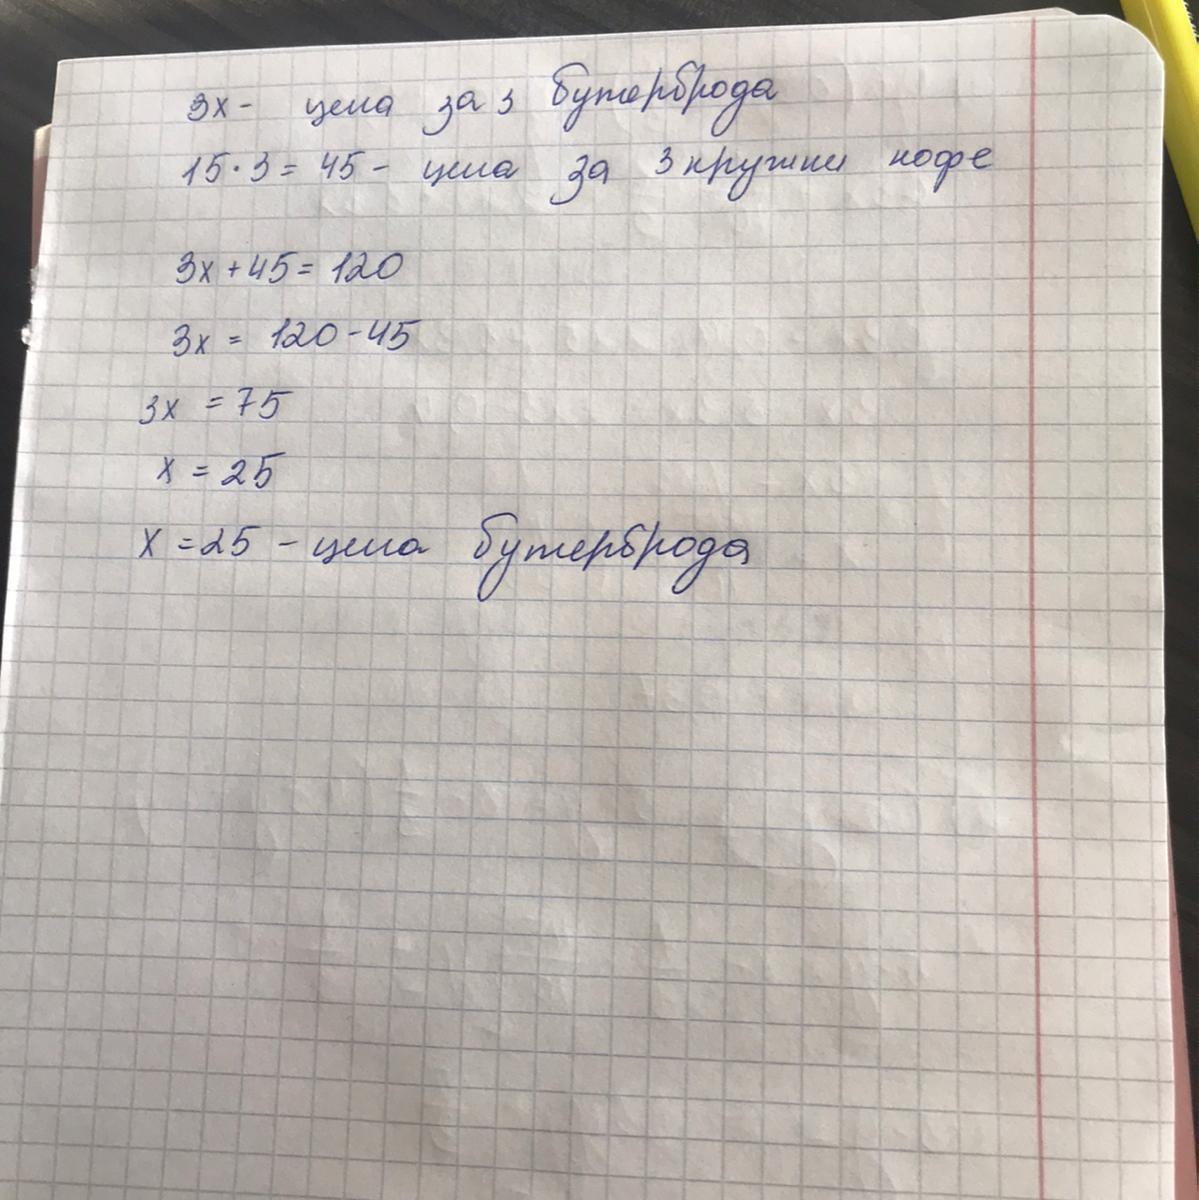 3х - цена за 3 бутерброда
15·3 = 45 - цена за 3 кружки кофе
3х + 45 = 120
3х = 120 - 45
3х = 75
х = 25
х = 25 - цена бутерброда